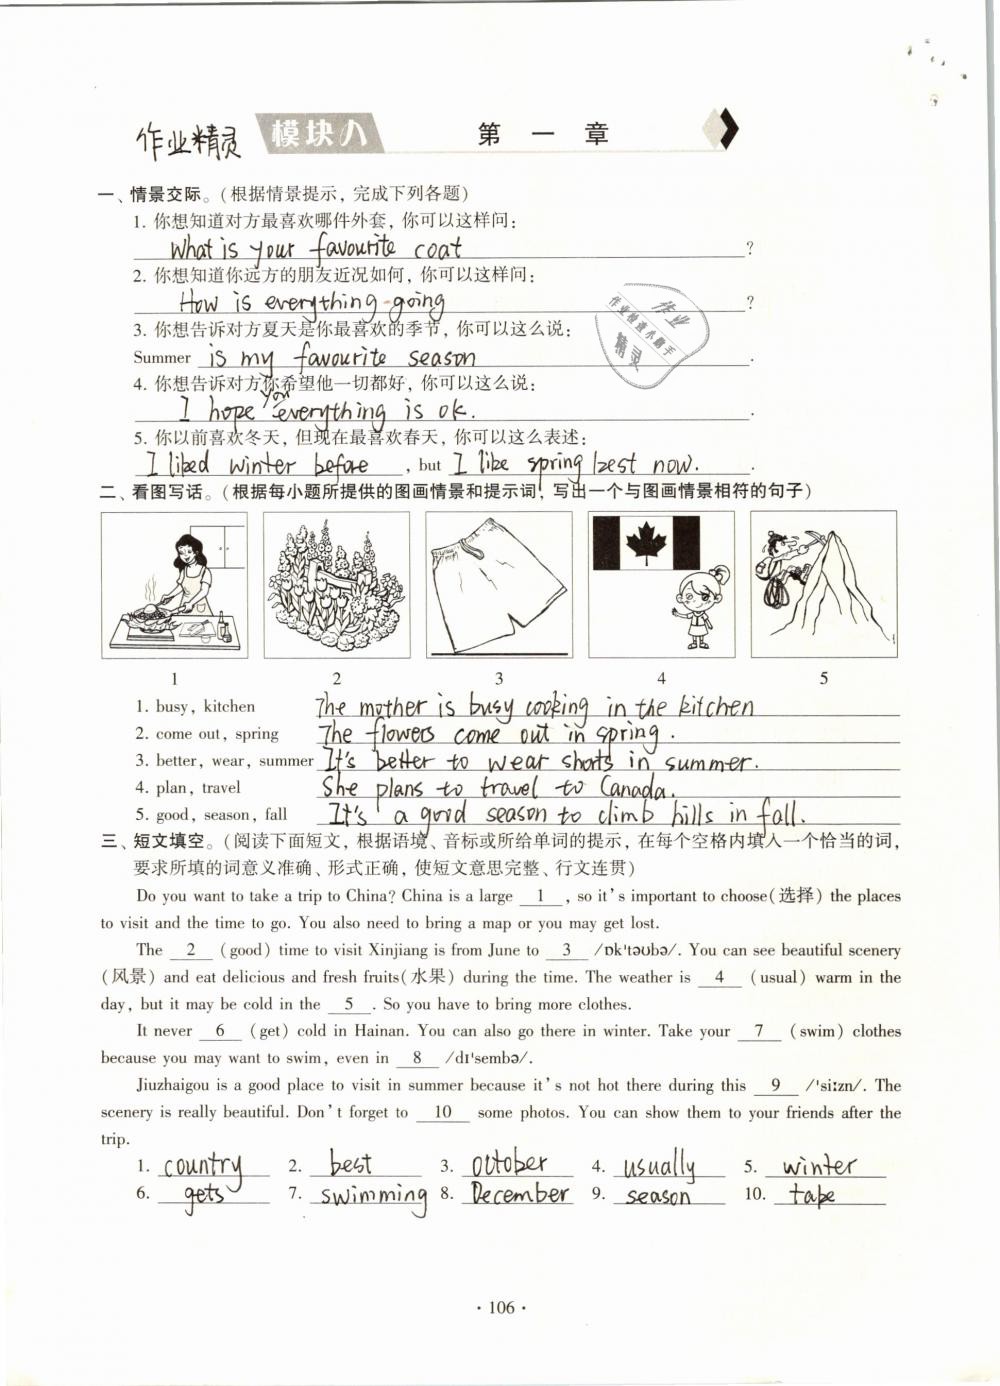 作业精灵 模块八 第一章
一、情景交际。(根据情景提示，完成下列各题)
1. 你想知道对方最喜欢哪件外套，你可以这样问：
What is your favourite coat ?
2. 你想知道你远方的朋友近况如何，你可以这样问：
How is everything going ?
3. 你想告诉对方夏天是你最喜欢的季节，你可以这么说：
Summer is my favourite season .
4. 你想告诉对方你希望他一切都好，你可以这么说：
you
I hope everything is ok. .
5. 你以前喜欢冬天，但现在最喜欢春天，你可以这么表述：
I liked winter before , but I like spring best now. .
二、看图写话。(根据每小题所提供的图画情景和提示词，写出一个与图画情景相符的句子)
作业
作业快速小助手
精灵
1 2 3 4 5
1. busy, kitchen The mother is busy cooking in the kitchen
2. come out, spring The flowers come out in spring .
3. better, wear, summer It's better to wear shorts in summer.
4. plan, travel She plans to travel to Canada.
5. good, season, fall It's a good season to climb hills in fall.
三、短文填空。(阅读下面短文，根据语境、音标或所给单词的提示，在每个空格内填入一个恰当的词，
要求所填的词意义准确、形式正确，使短文意思完整、行文连贯)
Do you want to take a trip to China? China is a large 1 , so it's important to choose(选择) the places
to visit and the time to go. You also need to bring a map or you may get lost.
The 2 (good) time to visit Xinjiang is from June to 3 /ɒk'təʊbə/. You can see beautiful scenery
(风景) and eat delicious and fresh fruits(水果) during the time. The weather is 4 (usual) warm in the
day, but it may be cold in the 5 . So you have to bring more clothes.
It never 6 (get) cold in Hainan. You can also go there in winter. Take your 7 (swim) clothes
because you may want to swim, even in 8 /dɪ'sembə/.
Jiuzhaigou is a good place to visit in summer because it's not hot there during this 9 /'siːzn/. The
scenery is really beautiful. Don't forget to 10 some photos. You can show them to your friends after the
trip.
1. country 2. best 3. October 4. usually 5. winter
6. gets 7. swimming 8. December 9. season 10. take
· 106 ·